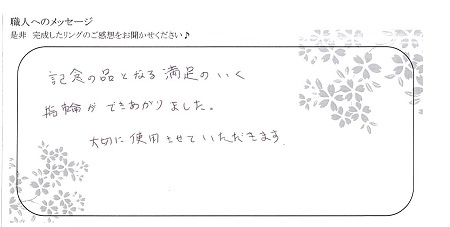 職人へのメッセージ
是非 完成したリングのご感想をお聞かせください♪
記念の品となる満足のいく
指輪ができあがりました。
大切に使用させていただきます